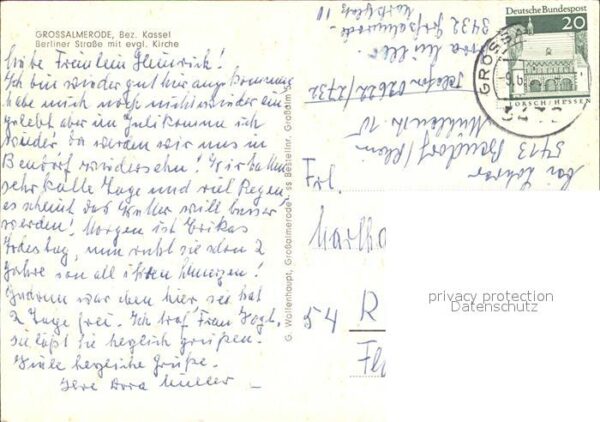 GROSSALMERODE, Bez. Kassel
Berliner Straße mit evgl. Kirche
Liebe Fräulein Heinrich!
Ich bin wieder gut hier angekommen
habe mich noch nicht wieder ein
gelebt aber im Juli komme ich
wieder da werden wir uns in
Bendorf wiedersehn! Wir hatten
sehr kalte Tage und viel Regen,
es scheint das Wetter will besser
werden! Morgen ist Erikas
Todestag, nun ruht sie schon 2
Jahre von all ihren Schmerzen!
war eben hier sie hat
2 Tage frei. Ich traf Frau Vogt,
sie läßt Sie herzlich grüßen.
Viele herzliche Grüße.
Ihre Dora Müller
G. Wollenhaupt, Großalmerode
ss Bestellnr. Großalm
Dora Müller
3432 Großalmerode
Marktplatz 10
Telefon 02622/2732
5413 Bendorf/Rhein
Deutsche Bundespost
20
LORSCH/HESSEN
GROSSA
-9.6.
3432
Frl.
54
R
privacy protection
Datenschutz